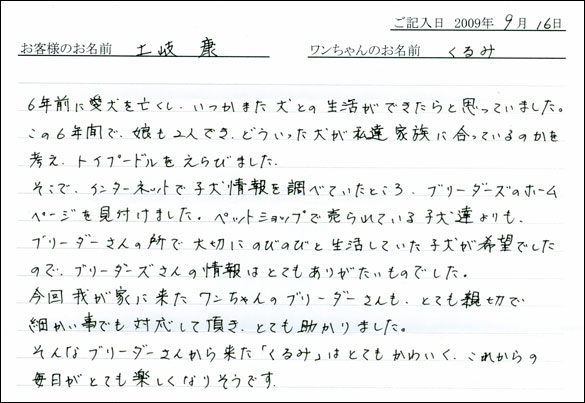 ご記入日 2009年 9月 16日
お客様のお名前 土岐 康 ワンちゃんのお名前 くるみ
6年前に愛犬を亡くし、いつかまた犬との生活ができたらと思っていました。
この6年間で、娘も2人でき、どういった犬が私達家族に合っているのかを
考え、トイプードルをえらびました。
そこで、インターネットで子犬情報を調べていたところ、ブリーダーズのホーム
ページを見付けました。ペットショップで売られている子犬達よりも、
ブリーダーさんの所で大切にのびのびと生活していた子犬が希望でした
ので、ブリーダーズさんの情報はとてもありがたいものでした。
今回我が家に来たワンちゃんのブリーダーさんも、とても親切で
細かい事でも対応して頂き、とても助かりました。
そんなブリーダーさんから来た「くるみ」はとてもかわいく、これからの
毎日がとても楽しくなりそうです。